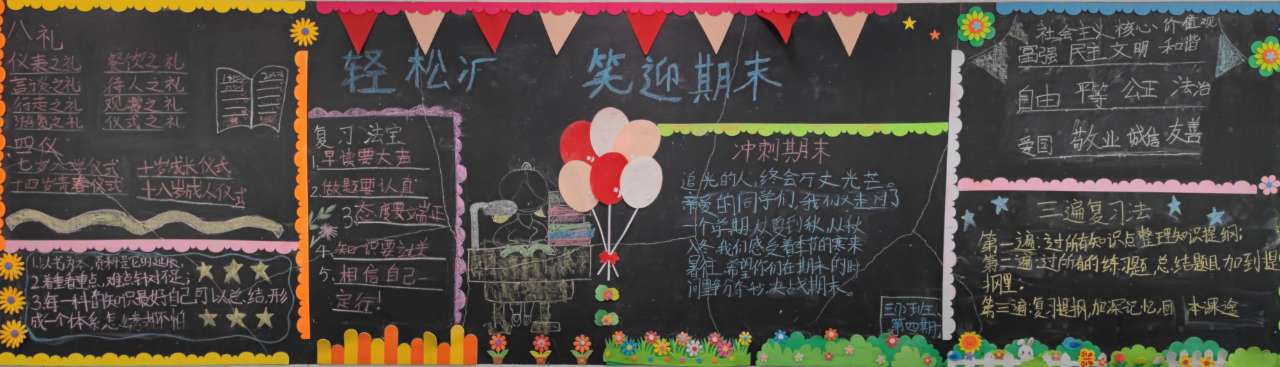 八礼
仪表之礼 餐饮之礼
言谈之礼 待人之礼
行走之礼 观赏之礼
游览之礼 仪式之礼
四仪
七岁入学仪式 十岁成长仪式
十四岁青春仪式 十八岁成人仪式
2.看看重点,难点针对不足;
3.每一科目知识最好自己可以总结,形
成一个体系怎么考都不怕
轻松汇 笑迎期末
复习法宝
1.早读要大声
2.做题要认真
3.态度要端正
4.知识要过关
5.相信自己一
定行!
冲刺期末
追光的人,终会万丈光芒。
亲爱的同学们,我们又走过了
一个学期,从夏到秋,从秋
入冬,我们感受着季节的寒来
暑往,希望你们在期末的时
间争分夺秒,决战期末。
第四期
社会主义核心价值观
富强 民主 文明 和谐
自由 平等 公正 法治
爱国 敬业 诚信 友善
三遍复习法
第一遍:过所有知识点整理知识提纲;
第二遍:过所有的练习题,总结题目加到提
纲里;
第三遍:复习提纲,加深记忆,回 本课途